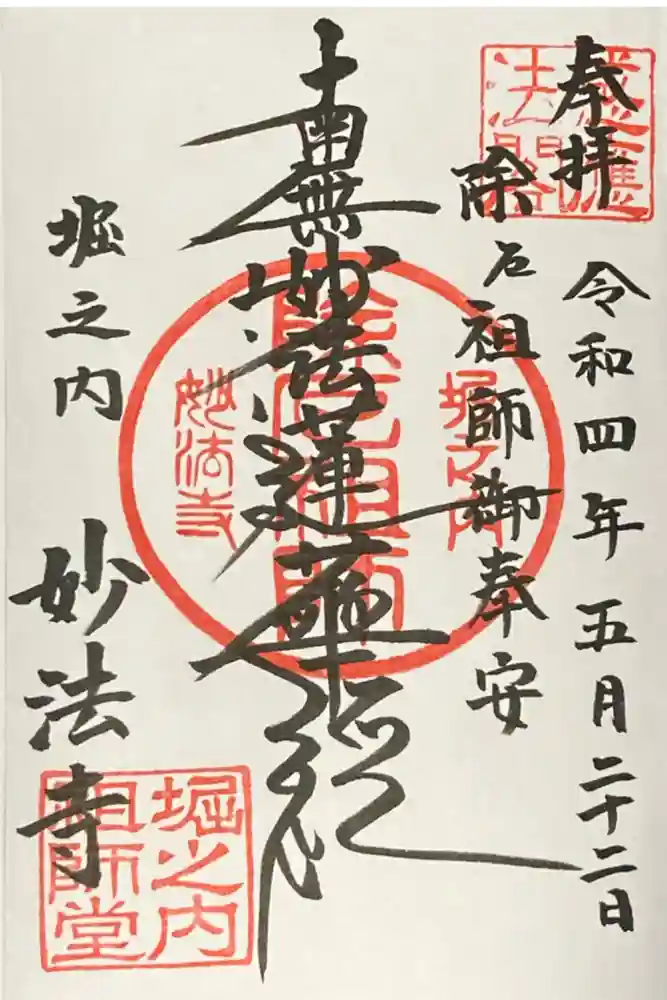 奉拝
令和四年五月二十二日
除厄祖師御奉安
南無妙法蓮華経
堀之内
妙法寺
感應
法閣
堀之内
除厄祖師
妙法寺
堀之内
祖師堂